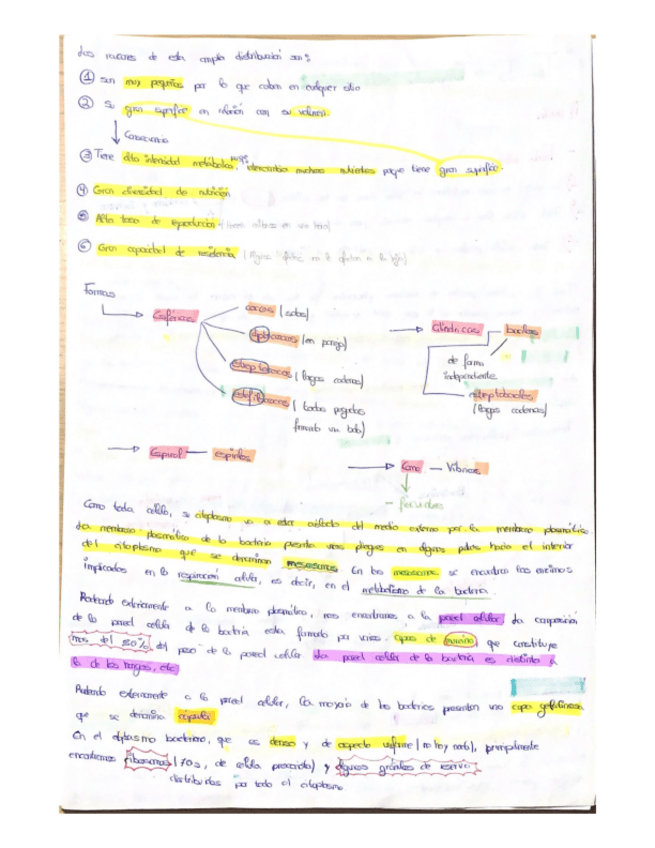 Las razones de esta amplia distribución son:
① Son muy pequeñas por lo que caben en cualquier sitio
② Su gran superficie en relación con su volumen.
Consecuencia
③ Tiene alta intensidad metabólica, intercambia muchos nutrientes porque tiene gran superficie.
④ Gran diversidad de nutrición
⑤ Alta tasa de reproducción
⑥ Gran capacidad de resistencia
Formas
Esféricas
cocos (solos)
diplococos (en pareja)
estreptococos (largas cadenas)
estafilococos (todos pegados
formando una bola)
Cilíndricas — bacilos
de forma
independiente
estreptobacilos
(largas cadenas)
Espiral — espirilos
Coma — Vibrios
Como toda célula, su citoplasma va a estar aislado del medio externo por la membrana plasmática.
La membrana plasmática de la bacteria presenta unos pliegues en algunos puntos hacia el interior
del citoplasma que se denominan mesosomas. En los mesosomas se encuentran las enzimas
implicadas en la respiración celular, es decir, en el metabolismo de la bacteria.
Rodeando exteriormente a la membrana plasmática, nos encontramos a la pared celular. La composición
de la pared celular de la bacteria está formada por varias capas de mureína que constituye
más del 80% del peso de la pared celular. La pared celular de la bacteria es distinta a
la de los hongos, etc
Rodeando exteriormente a la pared celular, la mayoría de las bacterias presentan una capa gelatinosa
que se denomina cápsula.
En el citoplasma bacteriano, que es denso y de aspecto uniforme (no hay nada), principalmente
encontramos ribosomas (70s, de célula procariota) y algunos gránulos de reserva
distribuidos por todo el citoplasma